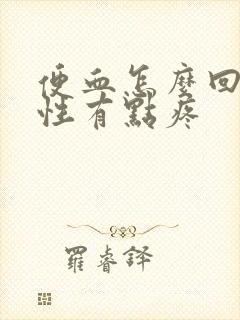 便血怎麼回
性有點疼
羅睿鐸